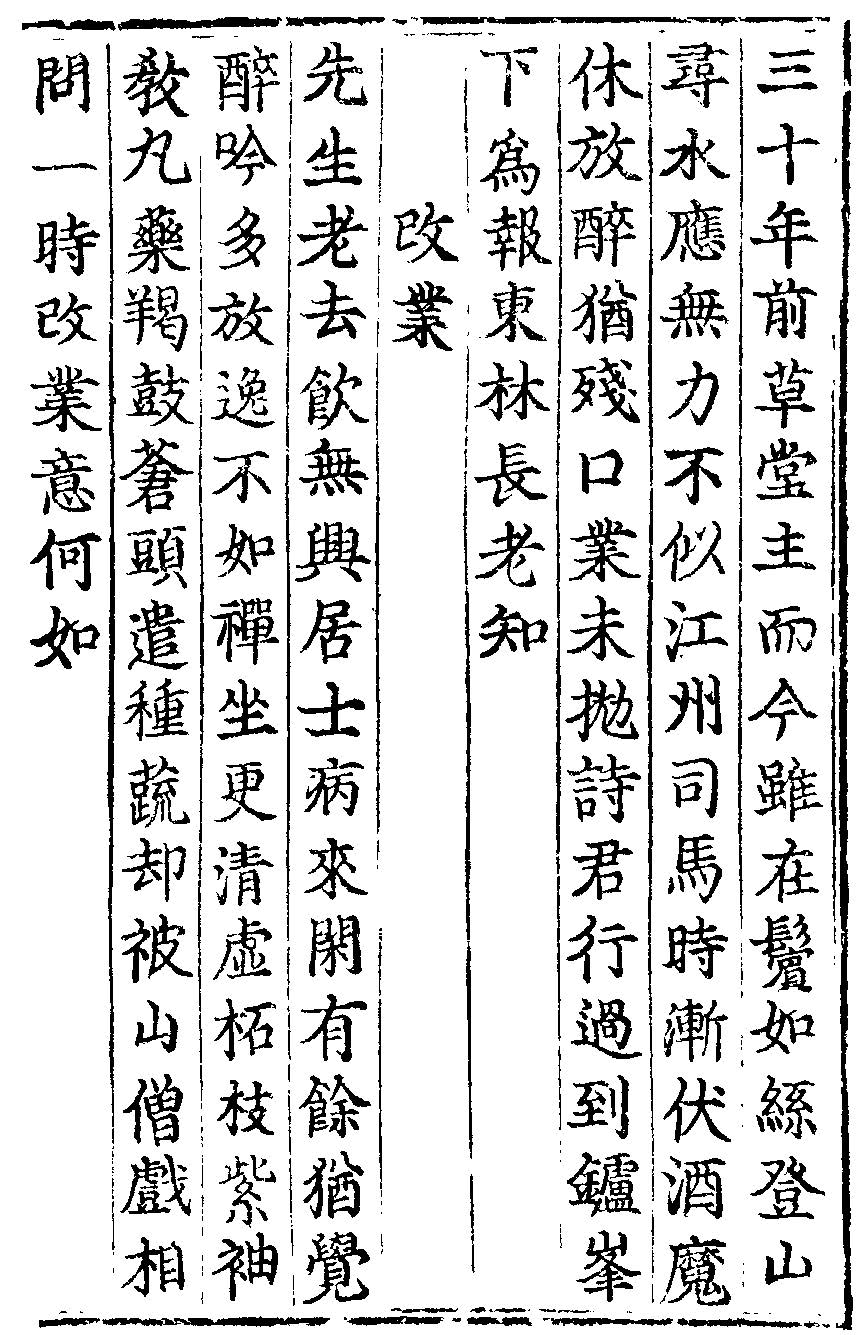 三十年前草堂主而今雖在鬢如絲登山
尋水應無力不似江州司馬時漸伏酒魔
休放醉猶殘口業未拋詩君行過到鑪峯
下爲報東林長老知
改業
先生老去飮無興居士病來閑有餘猶覺
醉吟多放逸不如禪坐更清虛柘枝紫袖
敎丸藥羯鼓蒼頭遣種蔬却被山僧戲相
問一時改業意何如